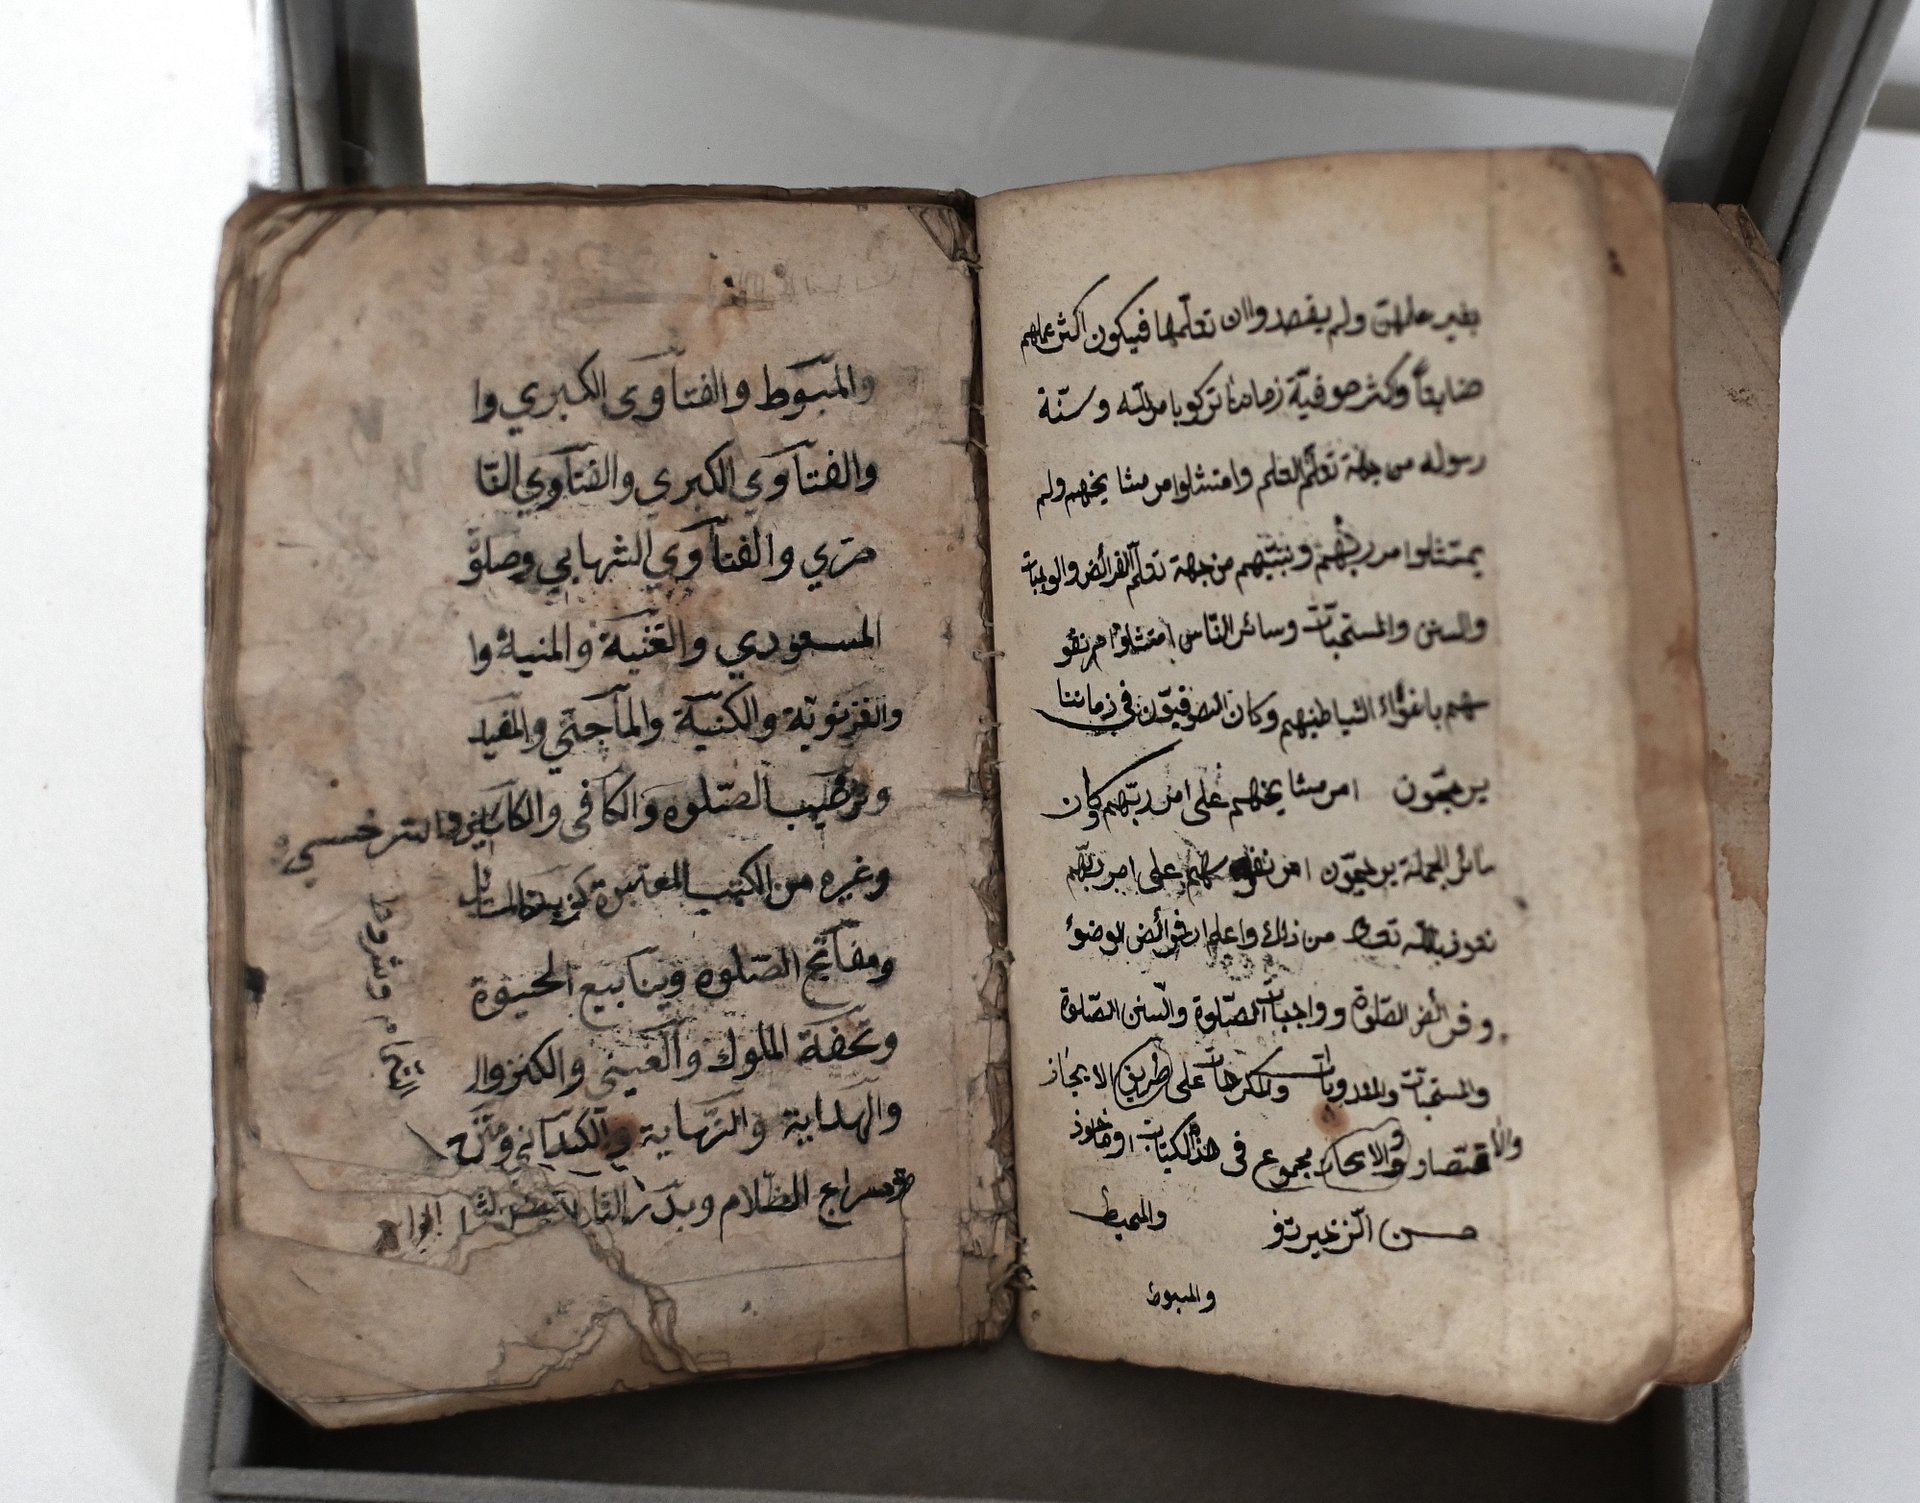 بغير علمهم ولم يقصدوا ان تعلمها فيكون اكثر عملهم
ضايعاً وكثر صوفيّة زماننا تركوا بامر الله وسنّة
رسوله من جهة تعلّم العلم وامتثلوا امر مشايخهم ولم
يمتثلوا امر ربّهم ونبيّهم من جهة تعلّم الفرائض والواجبات
والسنن والمستحبّات وسائر النّاس امتثلوا امر نفو
سهم باغواء الشياطينهم وكان الصوفيّون في زماننا
يرجّحون امر مشايخهم على امر ربّهم وكان
سائر الجملة يرجّحون امر نفوسهم على امر ربّهم
نعوذ بالله تعالى من ذلك واعلم ان فرائض الوضوء
وفرائض الصّلوة وواجبات الصّلوة والسنن الصّلوة
والمستحبّات والمكرهات على طريق الايجاز
والاقتصار مجموع في هذه الكتاب
والمحيط
والمبسوط
والمبسوط والفتاوى الكبري وا
والفتاوي الكبرى والفتاوي التّا
والفتاوي الشهابي وصلوة
المسعودي والغنية والمنية وا
والغزنويّة والمفيد
وترغيب الصّلوة والكافي والسرخسي
وغيره من الكتب المعتبرة
ومفاتح الصّلوة وينابيع الحيوة
وتحفة الملوك والعيني والكنز وا
والهداية والنّهاية والكيداني
وسراج الظّلام وبدر